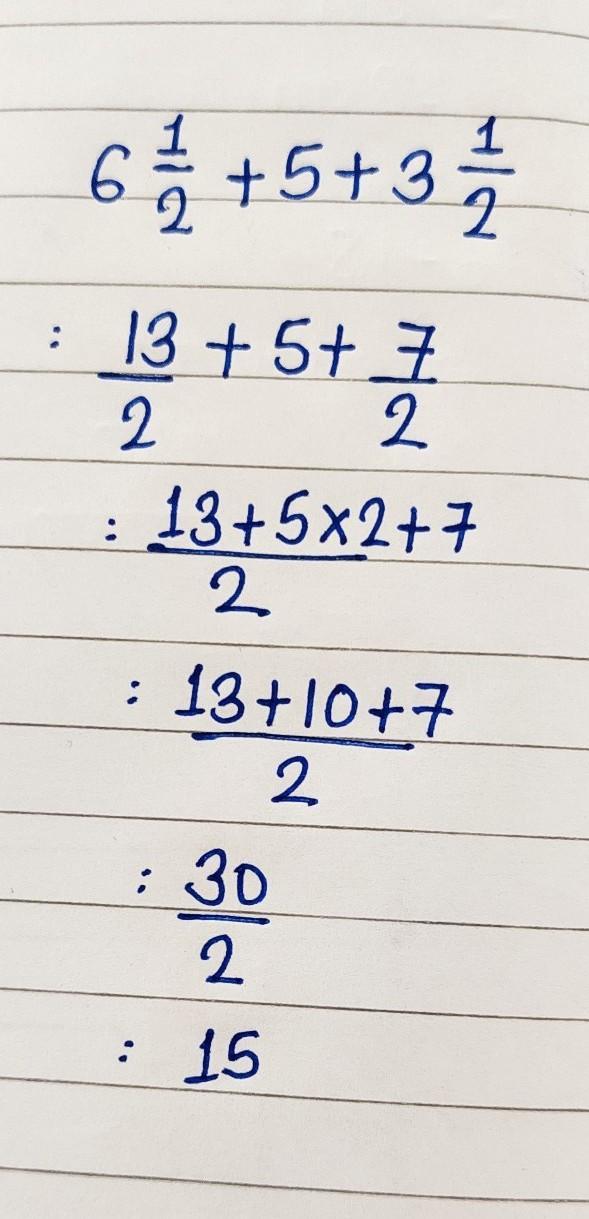 6 1/2 + 5 + 3 1/2
: 13/2 + 5 + 7/2
: 13+5×2+7/2
: 13+10+7/2
: 30/2
: 15